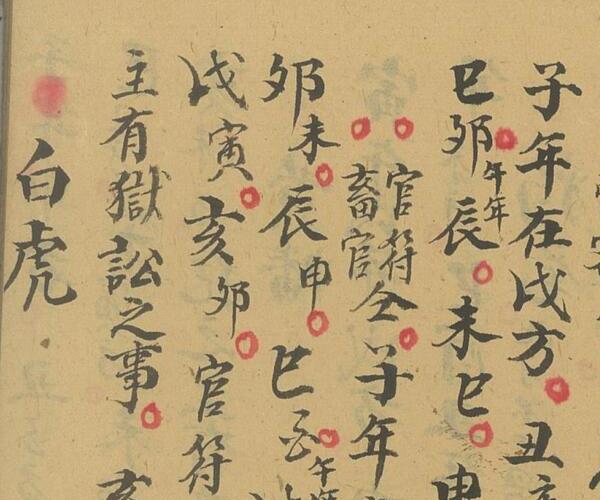 子年在戌方丑
巳夘午年辰未巳申
官符畜官仝子年
夘未辰申巳酉午
戌寅亥夘官符
主有獄訟之事亥
白虎